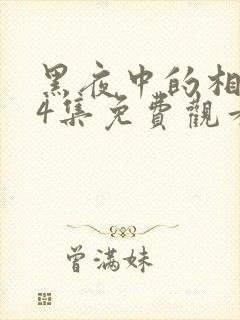 黑夜中的相
4集免費觀看
曾满妹